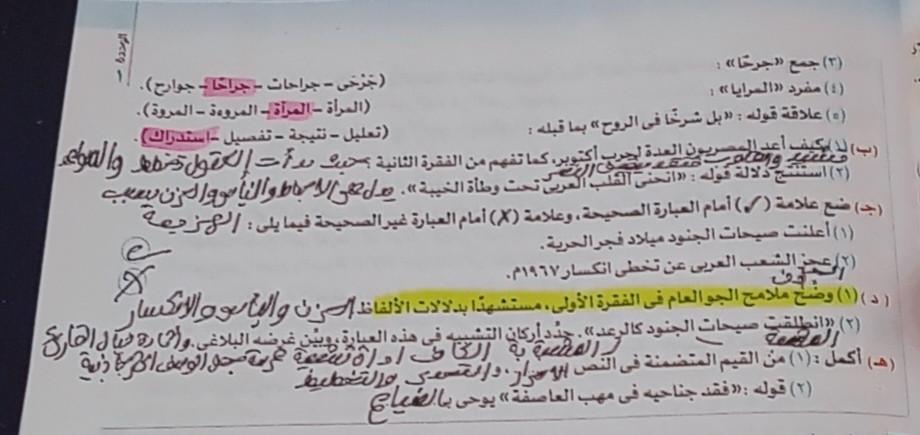 الوحدة ١
(٣) جمع «جرحًا» : (جَرْحَى - جراحات - جراحًا - جوارح).
(٤) مفرد «المرايا» : (المرأة - المرآة - المروءة - المروة).
(٥) علاقة قوله : «بل شرخًا فى الروح» بما قبله : (تعليل - نتيجة - تفصيل - استدراك)
(ب) (١) كيف أعد المصريون العدة لحرب أكتوبر، كما تفهم من الفقرة الثانية بحيث بدأت العقول تخطط والسواعد
(٢) استنتج دلالة قوله : «انحنى القلب العربى تحت وطأة الخيبة». يدل على الإحباط واليأس والحزن بسبب
الهزيمة
(جـ) ضع علامة (✓) أمام العبارة الصحيحة، وعلامة (✗) أمام العبارة غير الصحيحة فيما يلى :
(١) أعلنت صيحات الجنود ميلاد فجر الحرية.
(٢) عجز الشعب العربى عن تخطى انكسار ١٩٦٧م.
(د) (١) وضّح ملامح الجو العام فى الفقرة الأولى، مستشهدًا بدلالات الألفاظ الحزن واليأس والانكسار
(٢) «انطلقت صيحات الجنود كالرعد». حدِّد أركان التشبيه فى هذه العبارة وبيِّن غرضه البلاغى. وإثارة خيال القارئ
المشبه المشبه به الكاف أداة تشبيه
(هـ) أكمل : (١) من القيم المتضمنة فى النص الإصرار، والتحدى والتخطيط
(٢) قوله : «فقد جناحيه فى مهب العاصفة» يوحى بالضياع